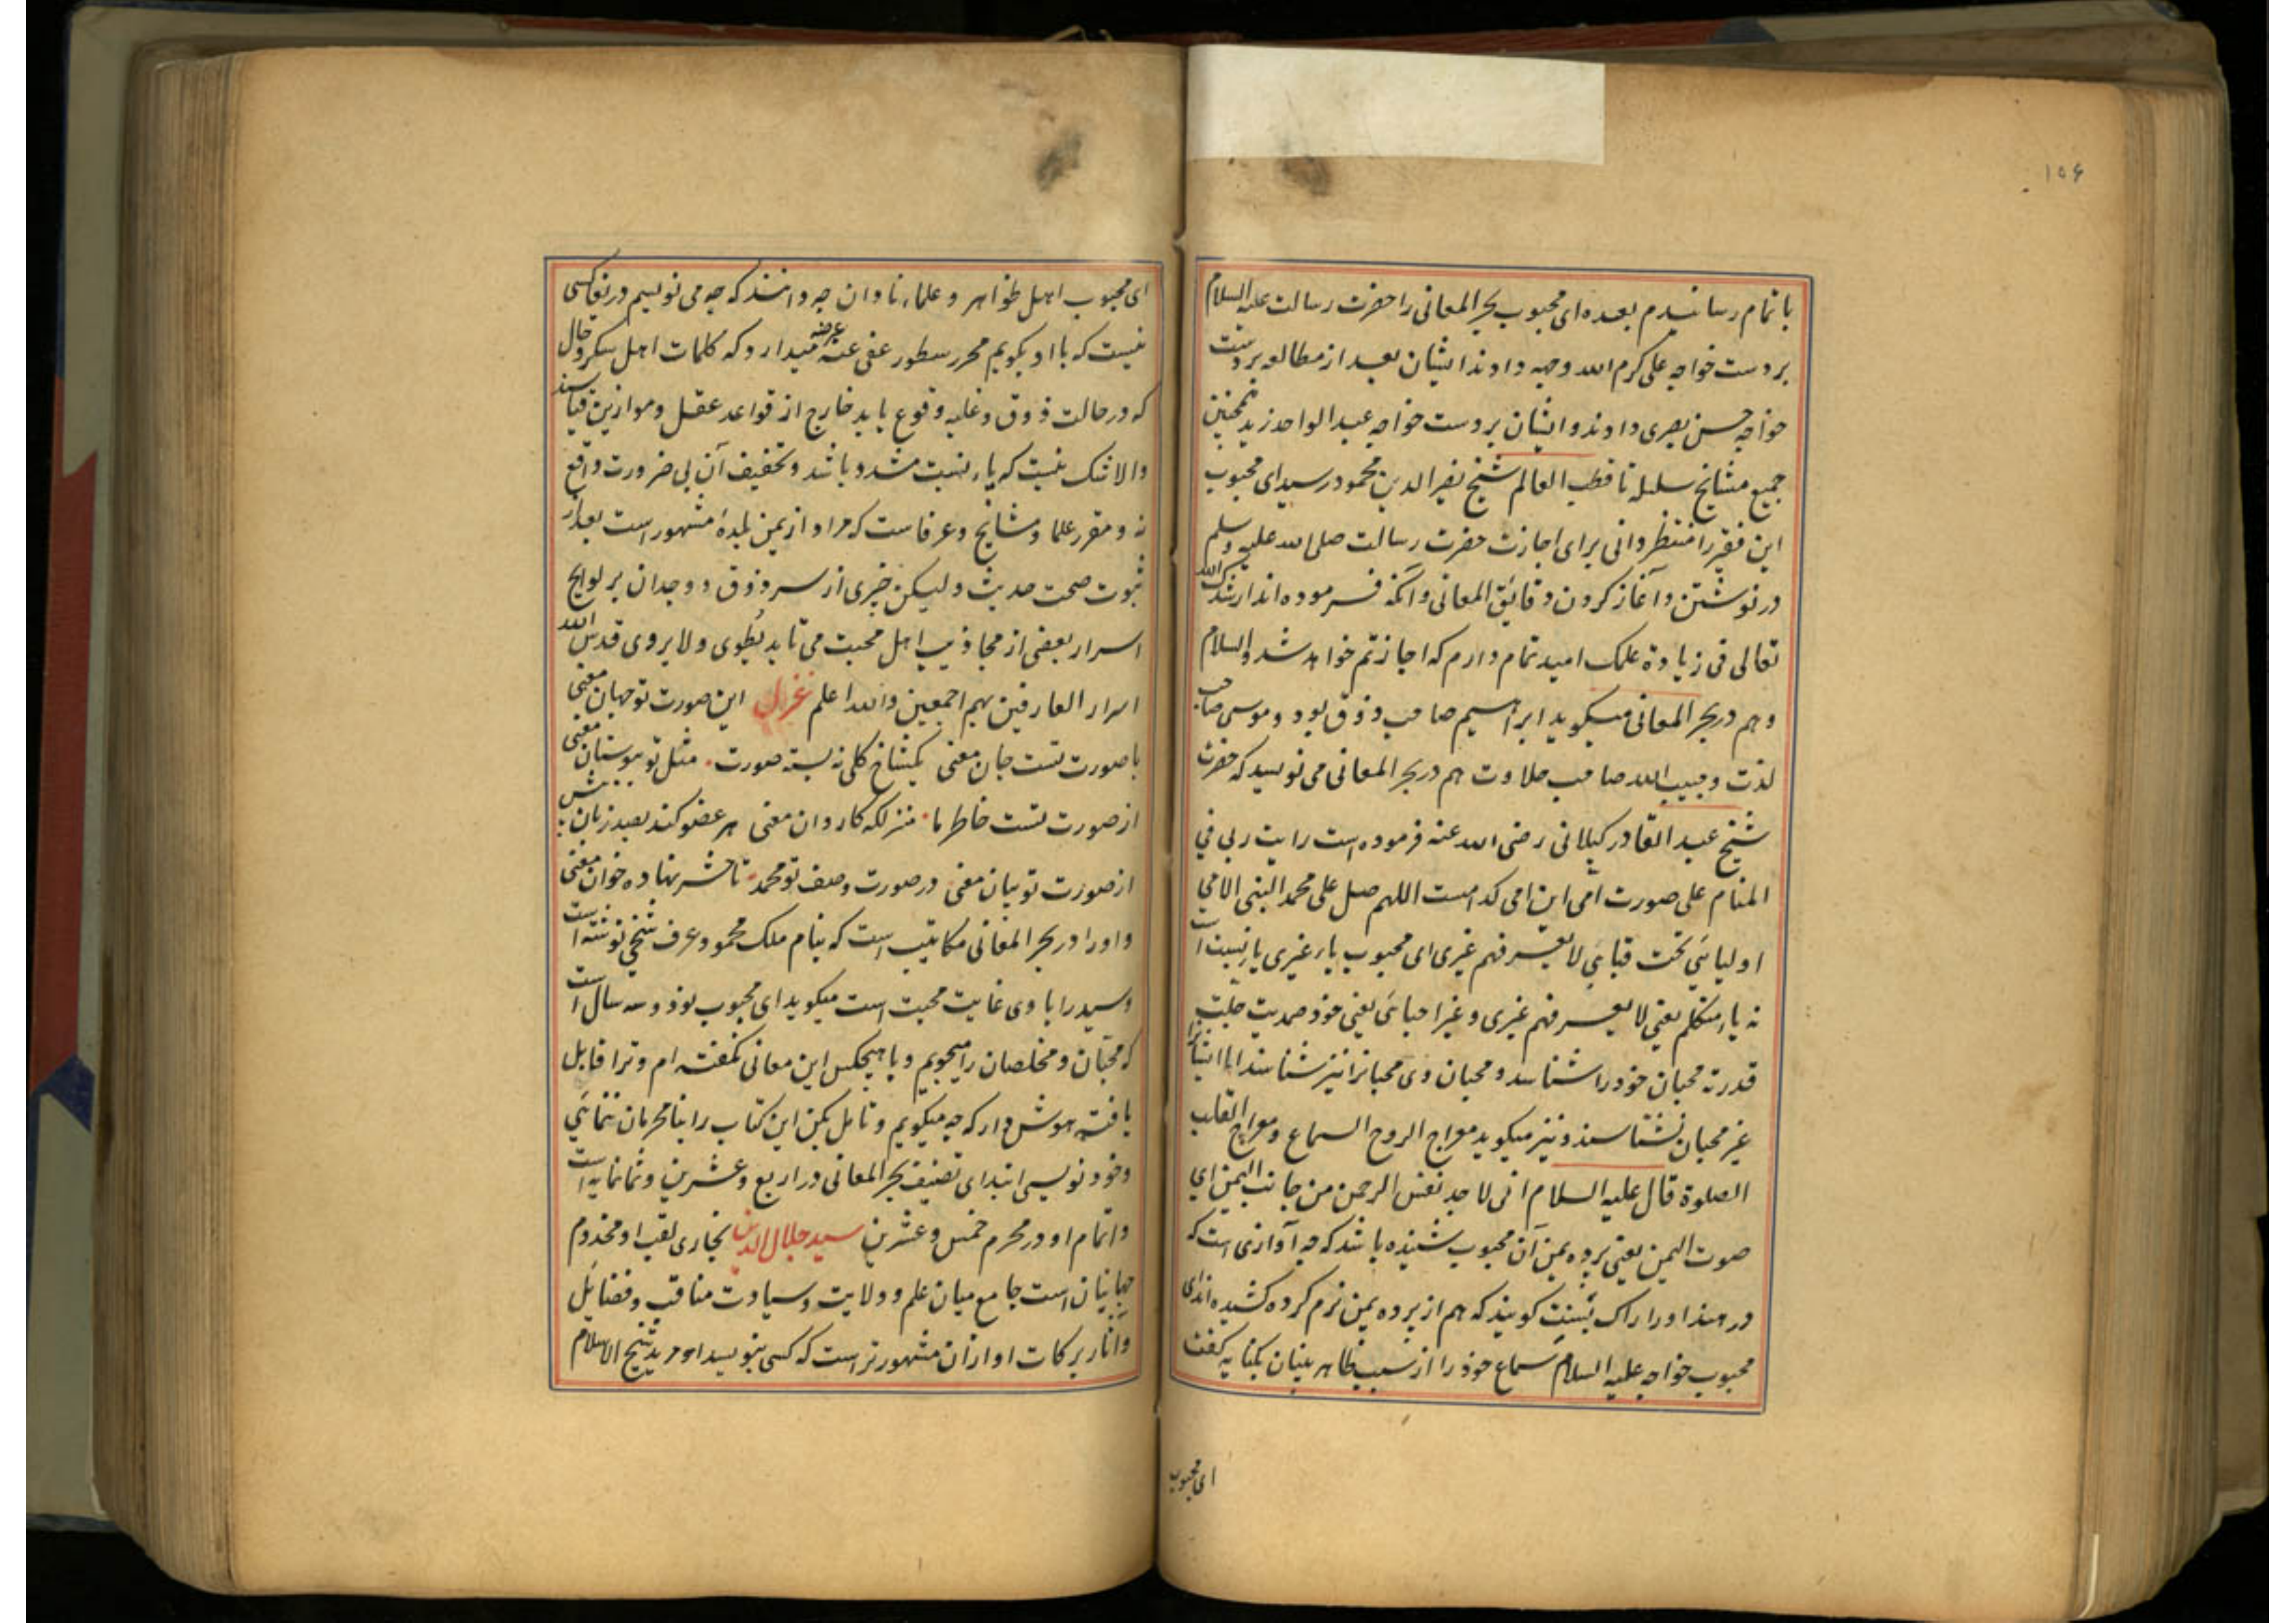 ۱۵۶
باتمام رسانیدم بعده ای محبوب بحر المعانی را حضرت رسالت علیه السلام
بر دست خواجه علی کرم الله وجهه دادند ایشان بعد از مطالعه بر دست
خواجه حسن بصری دادند و ایشان بر دست خواجه عبد الواحد زید همچنین
جمیع مشایخ سلسله تا قطب العالم شیخ نصیر الدین محمود رسید ای محبوب
این فقیر را منتظر دانی برای اجازت حضرت رسالت صلی الله علیه و سلم
در نوشتن و آغاز کردن دقایق المعانی و آنکه فرموده اند ارشدک الله
تعالی فی زیادة علمک امید تمام دارم که اجازتم خواهد شد والسلام
و هم در بحر المعانی میگوید ابراهیم صاحب ذوق بود و موسی صاحب
لذت و حبیب الله صاحب حلاوت هم در بحر المعانی می نویسد که حضرت
شیخ عبد القادر کیلانی رضی الله عنه فرموده است رایت ربی فی
المنام علی صورت امی این امی کدامست اللهم صل علی محمد النبی الامی
اولیائی تحت قبائی لا یعرفهم غیری ای محبوب یاء غیری یا نسبت است
نه یاء متکلم یعنی لا یعرفهم غیری و غیر احبائی یعنی خود صمدیت جلت
قدرته محبان خود را شناسد و محبان وی محبانرا نیز شناسند اما ایشانرا
غیر محبان نشناسند و نیز میکوید معراج الروح السماع و معراج القلب
الصلوة قال علیه السلام انی لاجد نفس الرحمن من جانب الیمن ای
صوت الیمن یعنی پرده یمن آن محبوب شنیده باشد که چه آوازی است که
در هند او را راک بسنت کویند که هم از پرده یمن نرم کرده کشیده اند ای
محبوب خواجه علیه السلام سماع خود را از سبب ظاهر بینان بکنایه کفت
ای محبوب
ای محبوب اهل ظواهر و علماء نادان چه دانند که چه می نویسم در یغا کسی
نیست که با او بکویم محرر سطور عفی عنه عرضه میدارد که کلمات اهل سکر و حال
که در حالت ذوق و غلبه وقوع یابد خارج از قواعد عقل و موازین قیاسند
والا شک نیست که یاء نسبت مشدد باشد و تخفیف آن بی ضرورت واقع
نه و مقرر علما و مشایخ و عرفاست که مراد از یمن بلدهٔ مشهور است بعد از
ثبوت صحت حدیث ولیکن خبری از سر ذوق و وجدان بر لوایح
اسرار بعضی از مجاذیب اهل محبت می تابد یطوی ولا یروی قدس الله
اسرار العارفین بهم اجمعین والله اعلم غزل این صورت تو جهان معنی
با صورت تست جان معنی یکشاخ کلی نه بسته صورت مثل تو ببوستان معنی
از صورت تست خاطر ما منزلکه کاروان معنی هر عضو کند بصد زبان
از صورت تو بیان معنی در صورت وصف تو محمد تا حشر نهاده خوان معنی
و او را در بحر المعانی مکاتیب است که بنام ملک محمود عرف شیخی نوشته است
و سید را با وی غایت محبت است میکوید ای محبوب نود و سه سال است
که محبان و مخلصان را میجویم و با هیچکس این معانی نکفته ام و ترا قابل
یافته هوش دار که چه میکویم و تامل بکن این کتاب را بنامحرمان ننمائی
و خود نویسی ابتدای تصنیف بحر المعانی در اربع و عشرین و ثمانمایه است
و اتمام او در محرم خمس و عشرین سید جلال الدین بخاری لقب او مخدوم
جهانیان است جامع میان علم و ولایت و سیادت مناقب و فضایل
و آثار برکات او ازان مشهور تر است که کسی بنویسد او مرید شیخ الاسلام